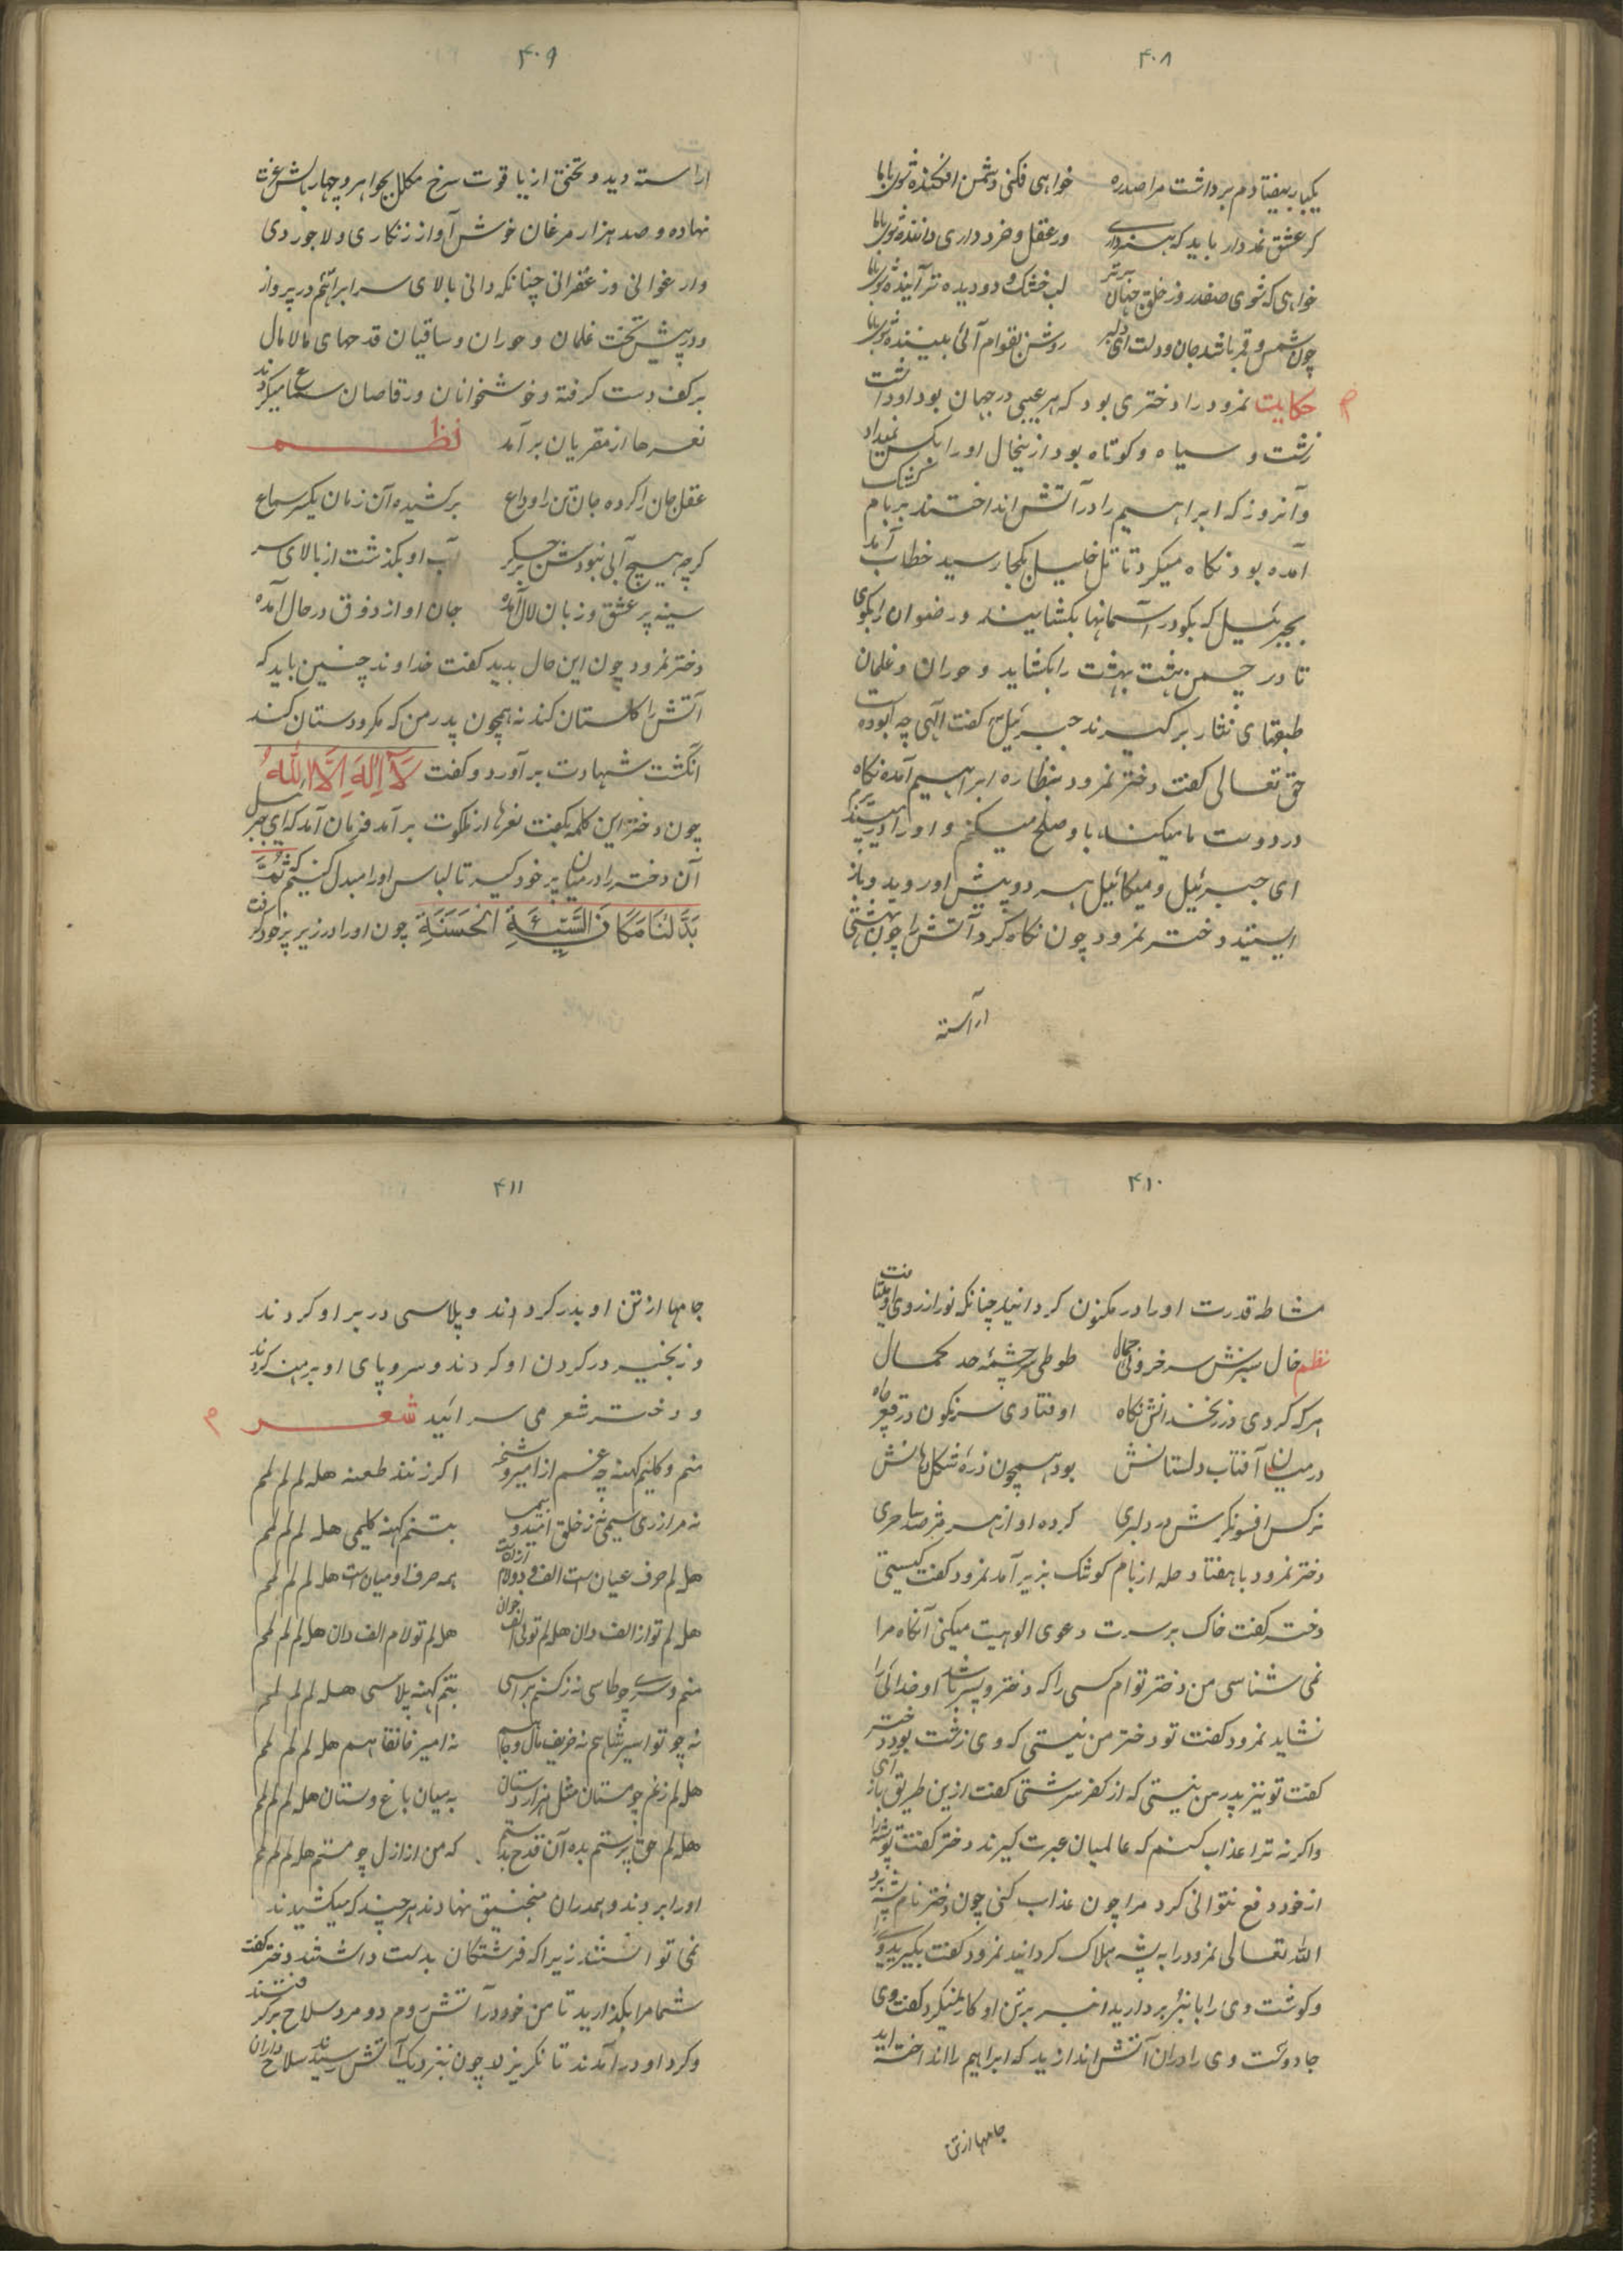 ۴۰۸
یکبار بیفتادم برداشت مرا صدره خواهی فکنی دشمن افکنده شو بابا
گر عشق نمددار باید که هنر داری ور عقل و خرد داری داننده شو بابا
خواهی که شوی صفدر وز خلق جهان برتر لب خشک و دو دیده تر آینده شو بابا
چون شمس و قمر باشد جان و دلت ای دلبر روشن بقوام آئی بیننده شو بابا
حکایت نمرود را دختری بود که هر عیبی در جهان بود او داشت
زشت و سیاه و کوتاه بود ازینحال او را بکس نمیداد
و آنروز که ابراهیم را در آتش انداختند بر بام کشک
آمده بود نگاه میکرد تا تل خلیل بکجا رسید خطاب آمد
بجبرئیل که بگو در آسمانها بکشایند و رضوان را بگوی
تا در چمن هشت بهشت را بکشاید و حوران و غلمان
طبقهای نثار برگیرند جبرئیل گفت الهی چه بوده است
حق تعالی گفت دختر نمرود بنظاره ابراهیم آمده نگاه
در دوست ما میکند با او صلح میکنم و او را می پسندیم
ای جبرئیل و میکائیل هر دو پیش او روید و باز
ایستید دختر نمرود چون نگاه کرد آتش را چون بهشتی
آراسته
۴۰۹
آراسته دید و تختی از یاقوت سرخ مکلل بجواهر و چهار بالش عزت
نهاده و صد هزار مرغان خوش آواز زنگاری و لاجوردی
و ارغوانی و زعفرانی چنانکه دانی بالای سر ابراهیم در پرواز
و در پیش تخت غلمان و حوران و ساقیان قدحهای مالامال
بر کف دست گرفته و خوشخوانان و رقاصان سماع میکردند
نعره‌ها از مقریان برآمد نظم
عقل جان را کرده جان تن را وداع برکشیده آن زمان یکسر سماع
گرچه هیچ آبی نبودش بر جگر آب او بگذشت از بالای سر
سینه پر عشق و زبان لال آمده جان او از ذوق در حال آمده
دختر نمرود چون این حال بدید گفت خداوند چنین باید که
آتش را گلستان کند نه همچون پدر من که مکر و دستان کند
انگشت شهادت برآورد و گفت لَا اِلهَ اِلَّا اللهُ
چون دختر این کلمه بگفت نعره‌ها از ملکوت برآمد فرمان آمد که ای جبرئیل
آن دختر را در میان پر خود گیر تا لباس او را مبدل کنیم که ثُمَّ
بَدَّلْنَا مَکَانَ السَّیِّئَةِ الْحَسَنَةِ چون او را در زیر پر خود گرفت
۴۱۰
مشاطه قدرت او را در مکنون گردانید چنانکه نور از روی او میتافت
نظم خال سبزش سرخ روئی جمال طوطی سرچشمه حد کمال
هر که کردی در زنخدانش نگاه اوفتادی سرنگون در قعر چاه
در میان آفتاب دلستانش بود همچون ذره شکل دهانش
نرگس افسونگرش در دلبری کرده او از هر مژه صد ساحری
دختر نمرود با هفتاد حله از بام کوشک بزیر آمد نمرود گفت کیستی
دختر گفت خاک بر سرت دعوی الوهیت میکنی آنگاه مرا
نمی شناسی من دختر توام کسی را که دختر و پسر باشد او خدائی را
نشاید نمرود گفت تو دختر من نیستی که وی زشت بود دختر
گفت تو نیز پدر من نیستی که از کفر سرشتی گفت ازین طریق باز آی
و اگرنه ترا عذاب کنم که عالمیان عبرت گیرند دختر گفت تو پشه را
از خود دفع نتوانی کرد مرا چون عذاب کنی چون دختر نام پشه برد
الله تعالی نمرود را به پشه هلاک گردانید نمرود گفت بگیرید ویرا
و گوشت وی را بانبر بردارید انبر بر تن او کار نمیکرد گفت وی
جادوست وی را در ان آتش اندازید که ابراهیم را انداخته اید
جامها از تن
۴۱۱
جامها از تن او بدر کردند و پلاسی در بر او کردند
و زنجیر در گردن او کردند و سر و پای او برهنه کردند
و دختر شعر می سرائید شعر
منم و گلیم کهنه چه غم از امیر و شحنه اگر زنند طعنه هله لم لم لم
نه مرا زری سیمی نه ز خلق امید و بیمی بتنم کهنه گلیمی هله لم لم لم
هله لم حرف عیان ست الف و دو لام ازان ست همه حرف او میان ست هله لم لم لم
هله لم تو از الف دان هله لم تو لی الف خوان هله لم تو لام الف دان هله لم لم لم
منم و سری چو طاسی نه ز کس هراسی بتنم کهنه پلاسی هله لم لم لم
نه چو تو اسیر شاهم نه حریف مال و جاهم نه امیر خانقاهم هله لم لم لم
هله لم زغم چو مستان مثل هزار دستان به میان باغ و بستان هله لم لم لم
هله لم حق پرستم بده آن قدح بدستم که من از ازل چو مستم هله لم لم لم
او را بردند و همدران منجنیق نهادند هر چند که میکشیدند
نمی توانستند زیرا که فرشتگان بدست داشتند دختر گفت
شما مرا بگذارید تا من خود در آتش روم دو مرد سلاح برگرفتند
و گرد او درآمدند تا نگریزد چون بنزدیک آتش رسیدند سلاح داران